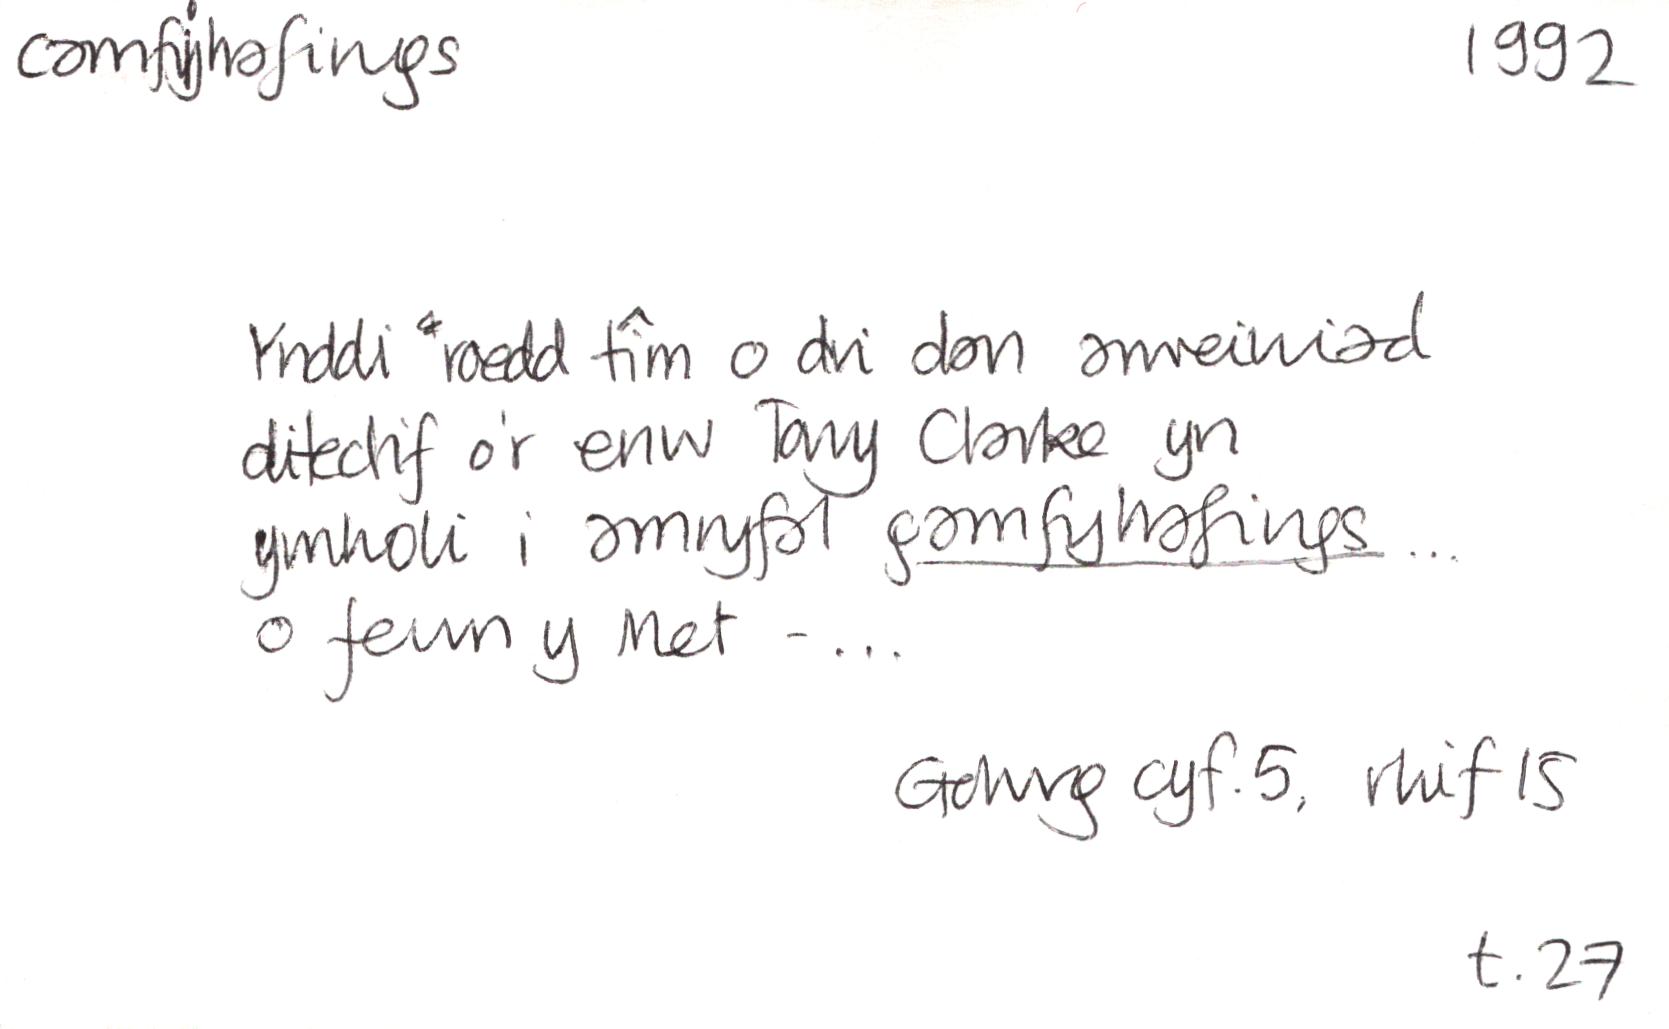 camfihafings 1992
Ynddi 'roedd tîm o dri dan arweiniad
ditectif o'r enw Tony Clarke yn
ymholi i amryfal gamfyhafings ...
o fewn y Met - ...
Golwg cyf. 5, rhif 15
t. 27